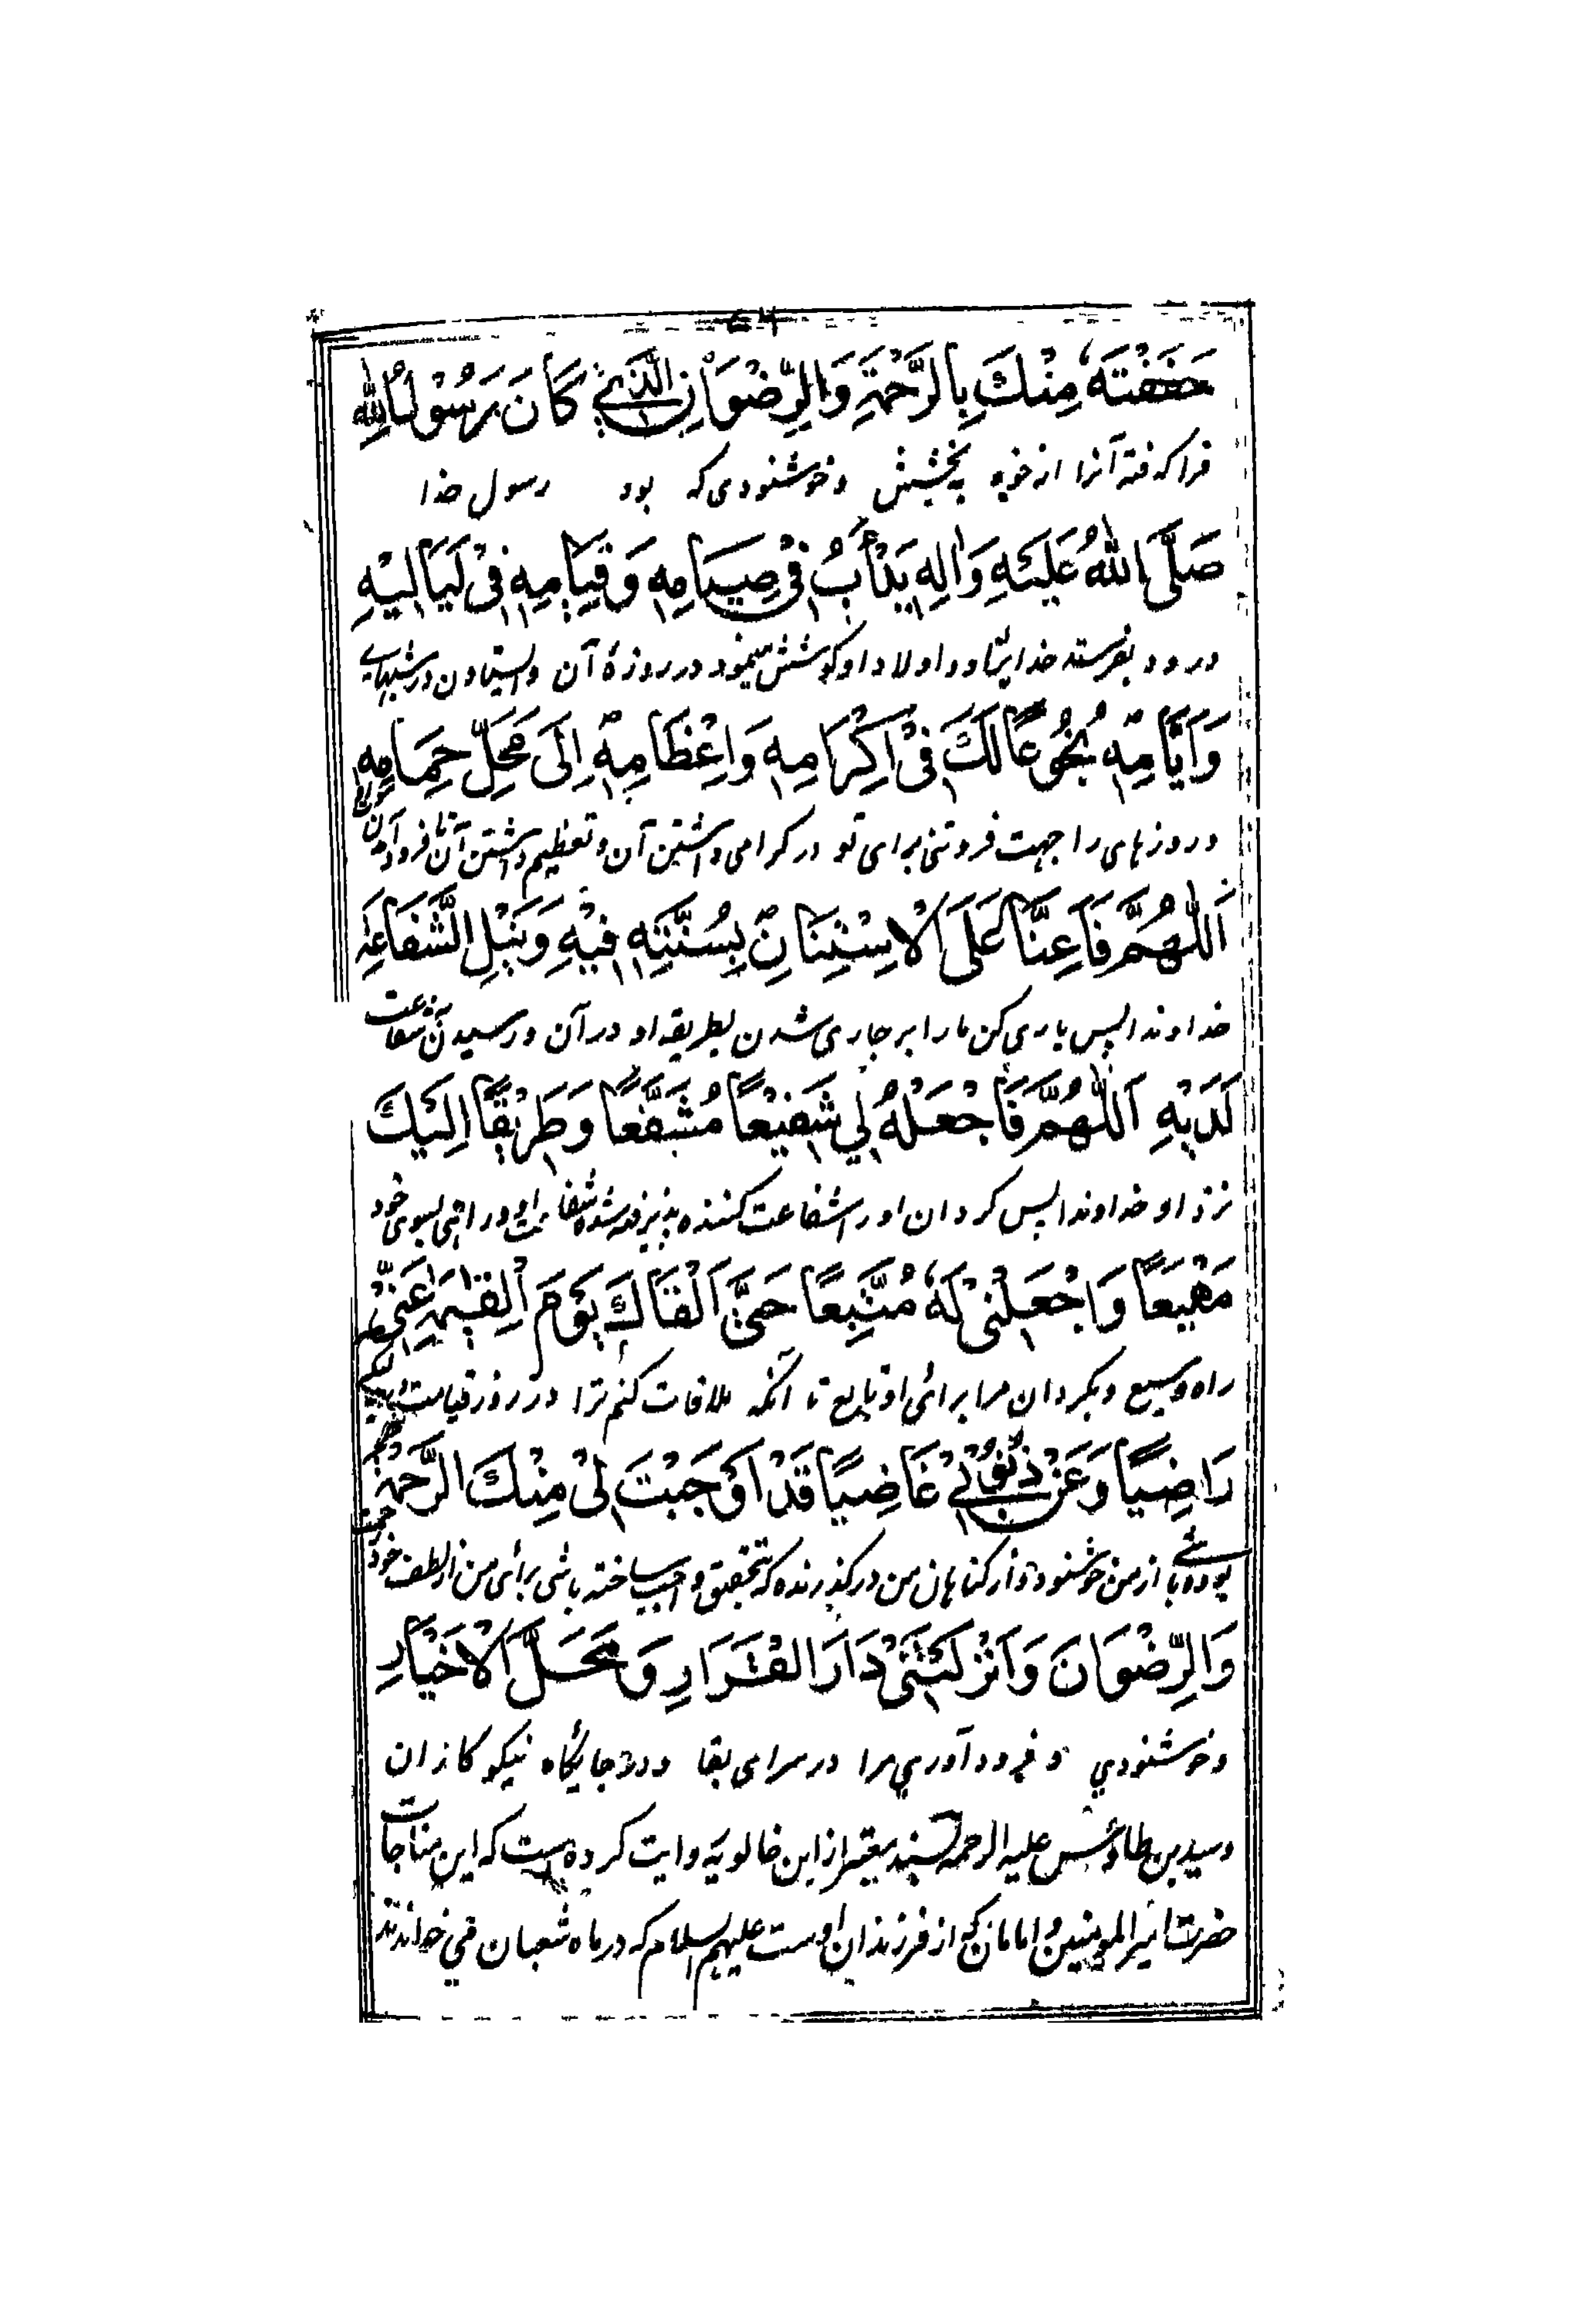 حَفَفْتَهُ مِنْكَ بِالرَّحْمَةِ وَالرِّضْوَانِ الَّذِي كَانَ رَسُوْلُ اللهِ
فراکرفته آنرا از خود به بخشش و خوشنودی که بود رسول خدا
صَلَّى اللهُ عَلَيْهِ وَاٰلِهِ يَدْأَبُ فِيْ صِيَامِهِ وَقِيَامِهِ فِيْ لَيَالِيْهِ
درود بفرستد خدا براو و اولاد او کوشش مینمود در روزهٔ آن و ایستادن در شبهای
وَاَيَّامِهِ بُخُوْعًا لَكَ فِيْ اِكْرَامِهِ وَاِعْظَامِهِ اِلَى مَحَلِّ حِمَامِهِ
و روزهای را جهت فروتنی برای تو در کرامی داشتن آن و تعظیم داشتن آن تا فرود آمدن
اَللّٰهُمَّ فَاَعِنَّا عَلَى الْاِسْتِنَانِ بِسُنَّتِهِ فِيْهِ وَنَيْلِ الشَّفَاعَةِ
خداوندا پس یاری کن مارا بر جاری شدن بطریقه او در آن و رسیدن شفاعت
لَدَيْهِ اَللّٰهُمَّ فَاجْعَلْهُ لِي شَفِيْعًا مُشَفَّعًا وَطَرِيْقًا اِلَيْكَ
نزد او خداوندا پس کردان اورا شفاعت کننده پذیرفته شده شفاعت او و راهی بسوی خود
مَهْيَعًا وَاجْعَلْنِيْ لَهُ مُتَّبِعًا حَتّٰى اَلْقَاكَ يَوْمَ الْقِيٰمَةِ عَنِّيْ
راه وسیع و بکردان مرا برای او تابع تا آنکه ملاقات کنم ترا در روز قیامت
رَاضِيًا وَعَنْ ذُنُوْبِي غَاضِيًا قَدْ اَوْجَبْتَ لِيْ مِنْكَ الرَّحْمَةَ
بوده باشی از من خوشنود و از کناهان من درکذرنده که بتحقیق واجب ساخته باشی برای من از لطف خود
وَالرِّضْوَانَ وَاَنْزَلْتَنِيْ دَارَ الْقَرَارِ وَمَحَلَّ الْاَخْيَارِ
و خوشنودی و فرود آوری مرا در سرای بقا و در جایگاه نیکوکاران
و سید بن طاوس علیه الرحمه بسند معتبر از ابن خالویه روایت کرده است که این مناجات
حضرت امیر المومنین و امامان که از فرزندان اوست علیهم السلام که در ماه شعبان می خواندند